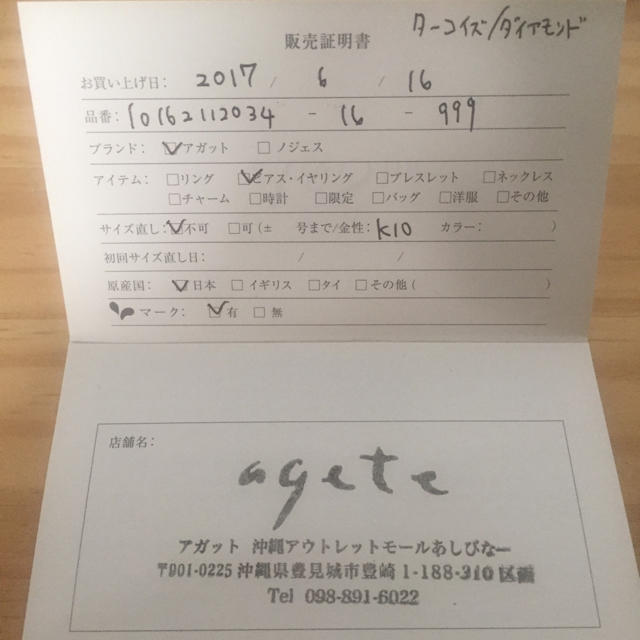 ターコイズ/ダイアモンド
販売証明書
お買い上げ日: 2017 / 6 / 16
品番: 10162112034 - 16 - 999
ブランド: ☑アガット ☐ノジェス
アイテム: ☐リング ☑ピアス・イヤリング ☐ブレスレット ☐ネックレス
☐チャーム ☐時計 ☐限定 ☐バッグ ☐洋服 ☐その他
サイズ直し: ☑不可 ☐可(± 号まで/金性: K10 カラー: )
初回サイズ直し日: / /
原産国: ☑日本 ☐イギリス ☐タイ ☐その他( )
マーク: ☑有 ☐無
店舗名:
agete
アガット 沖縄アウトレットモールあしびなー
〒901-0225 沖縄県豊見城市豊崎1-188-310区画
Tel 098-891-6022